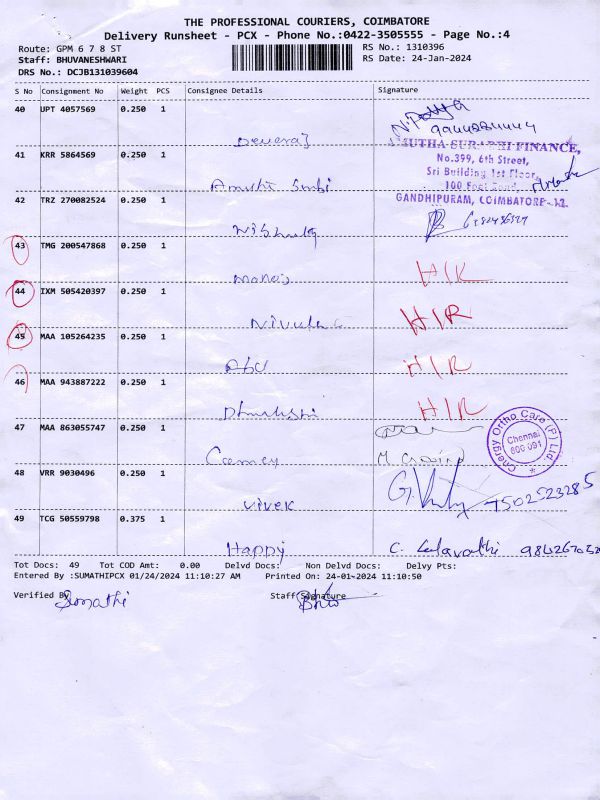 THE PROFESSIONAL COURIERS, COIMBATORE
Delivery Runsheet - PCX - Phone No.:0422-3505555 - Page No.:4
Route: GPM 6 7 8 ST
RS No.: 1310396
Staff: BHUVANESHWARI
RS Date: 24-Jan-2024
DRS No.: DCJB131039604
S No Consignment No Weight PCS Consignee Details Signature
40 UPT 4057569 0.250 1
Devaraj
9944281444
41 KRR 5864569 0.250 1
AMUTHA SURABHI FINANCE,
No.399, 6th Street,
Sri Building 1st Floor,
100 Feet Road,
GANDHIPURAM, COIMBATORE-12.
42 TRZ 270082524 0.250 1
43 TMG 200547868 0.250 1
Manoj H/R
44 IXM 505420397 0.250 1
H/R
45 MAA 105264235 0.250 1
Abu H/R
46 MAA 943887222 0.250 1
H/R
47 MAA 863055747 0.250 1
Chennai
600 091
48 VRR 9030496 0.250 1
Vivek 7502523285
49 TCG 50559798 0.375 1
Happy
Tot Docs: 49 Tot COD Amt: 0.00 Delvd Docs: Non Delvd Docs: Delvy Pts:
Entered By :SUMATHIPCX 01/24/2024 11:10:27 AM Printed On: 24-01-2024 11:10:50
Verified By Staff Signature